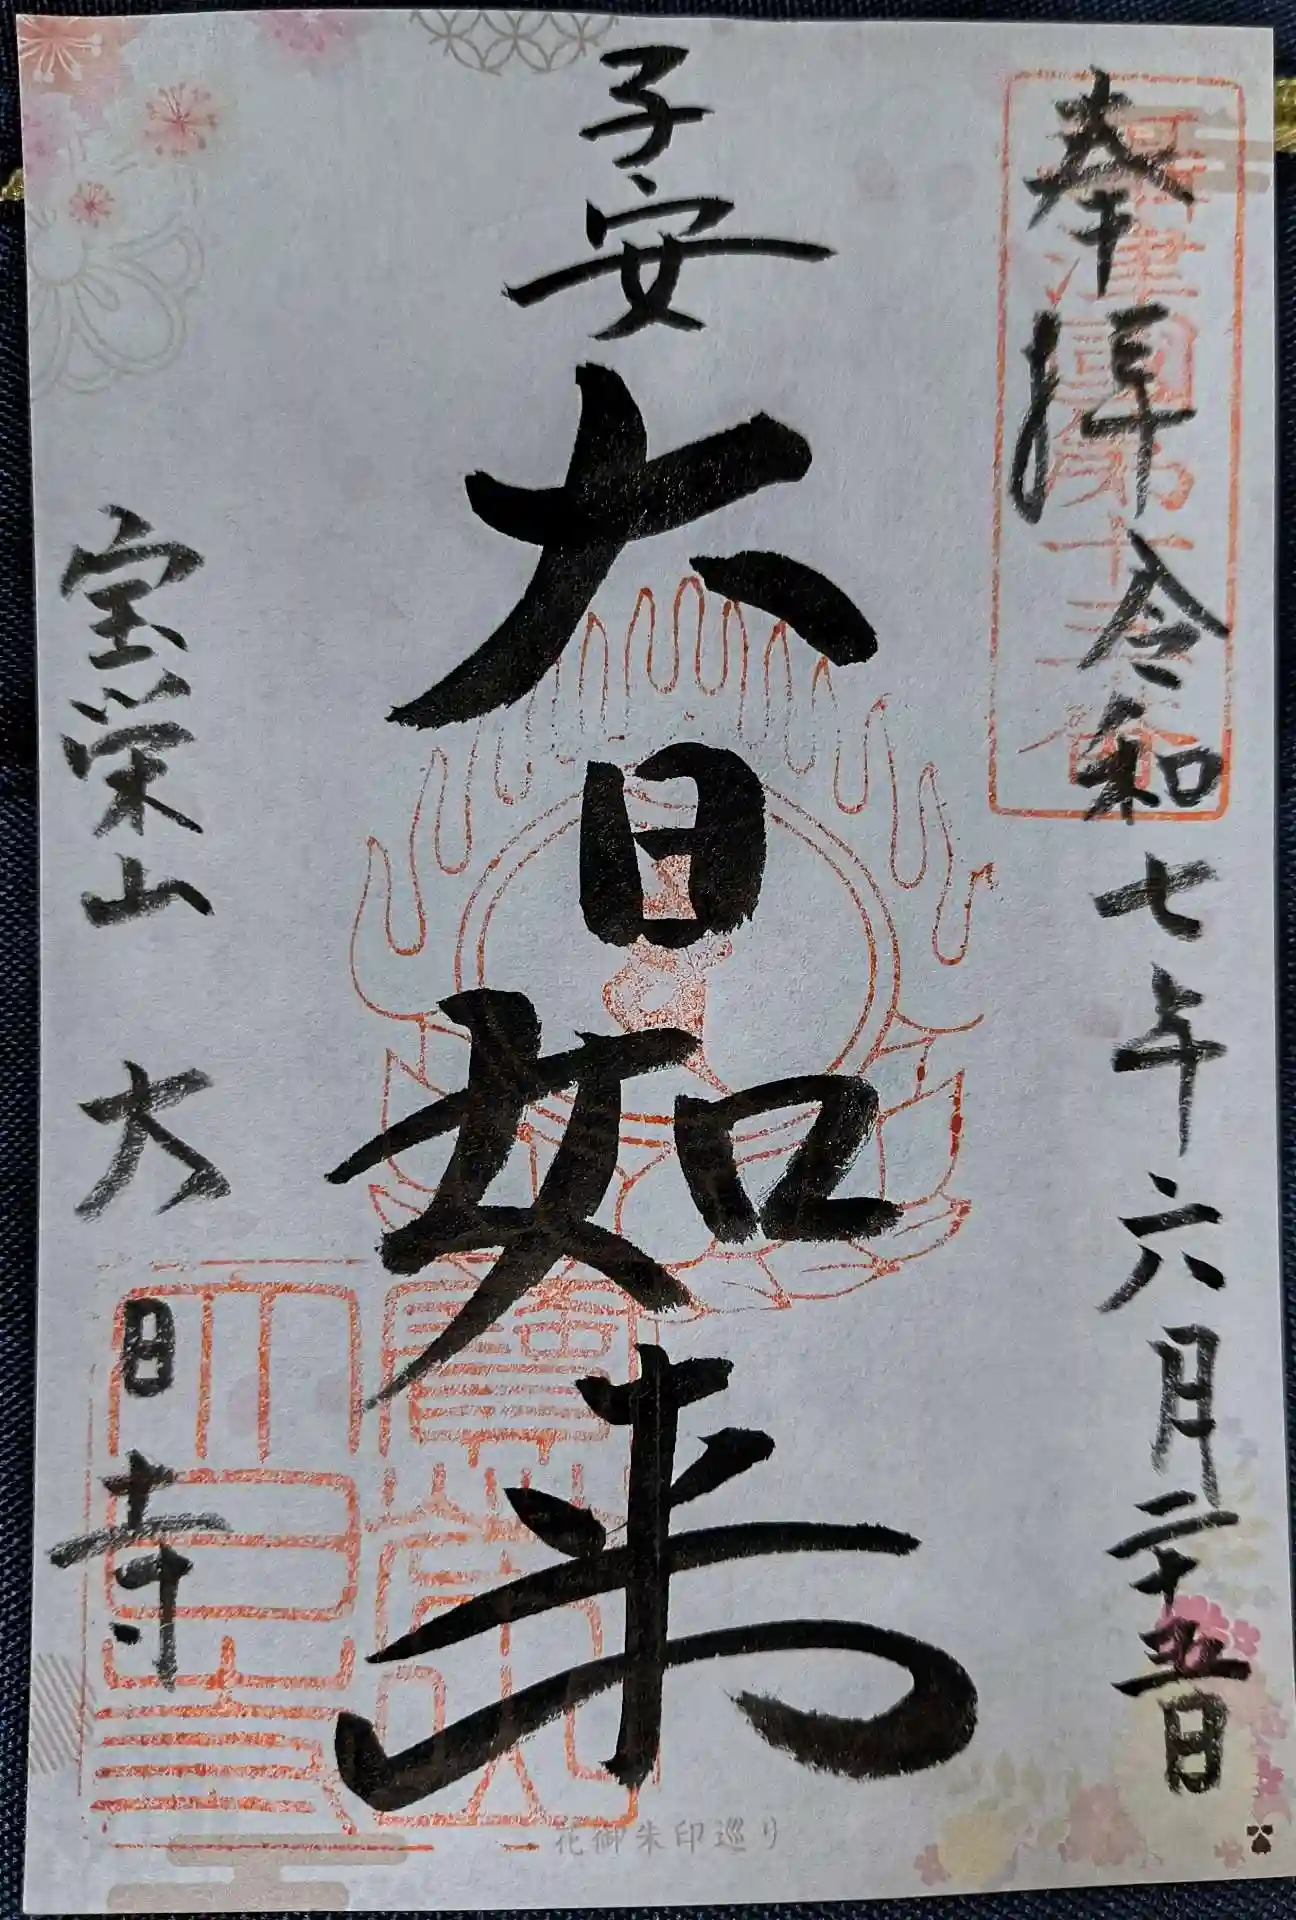 奉拝 令和七年六月二十五日
摂津國第十三番
子安
大日如来
宝栄山 大日寺
花御朱印巡り